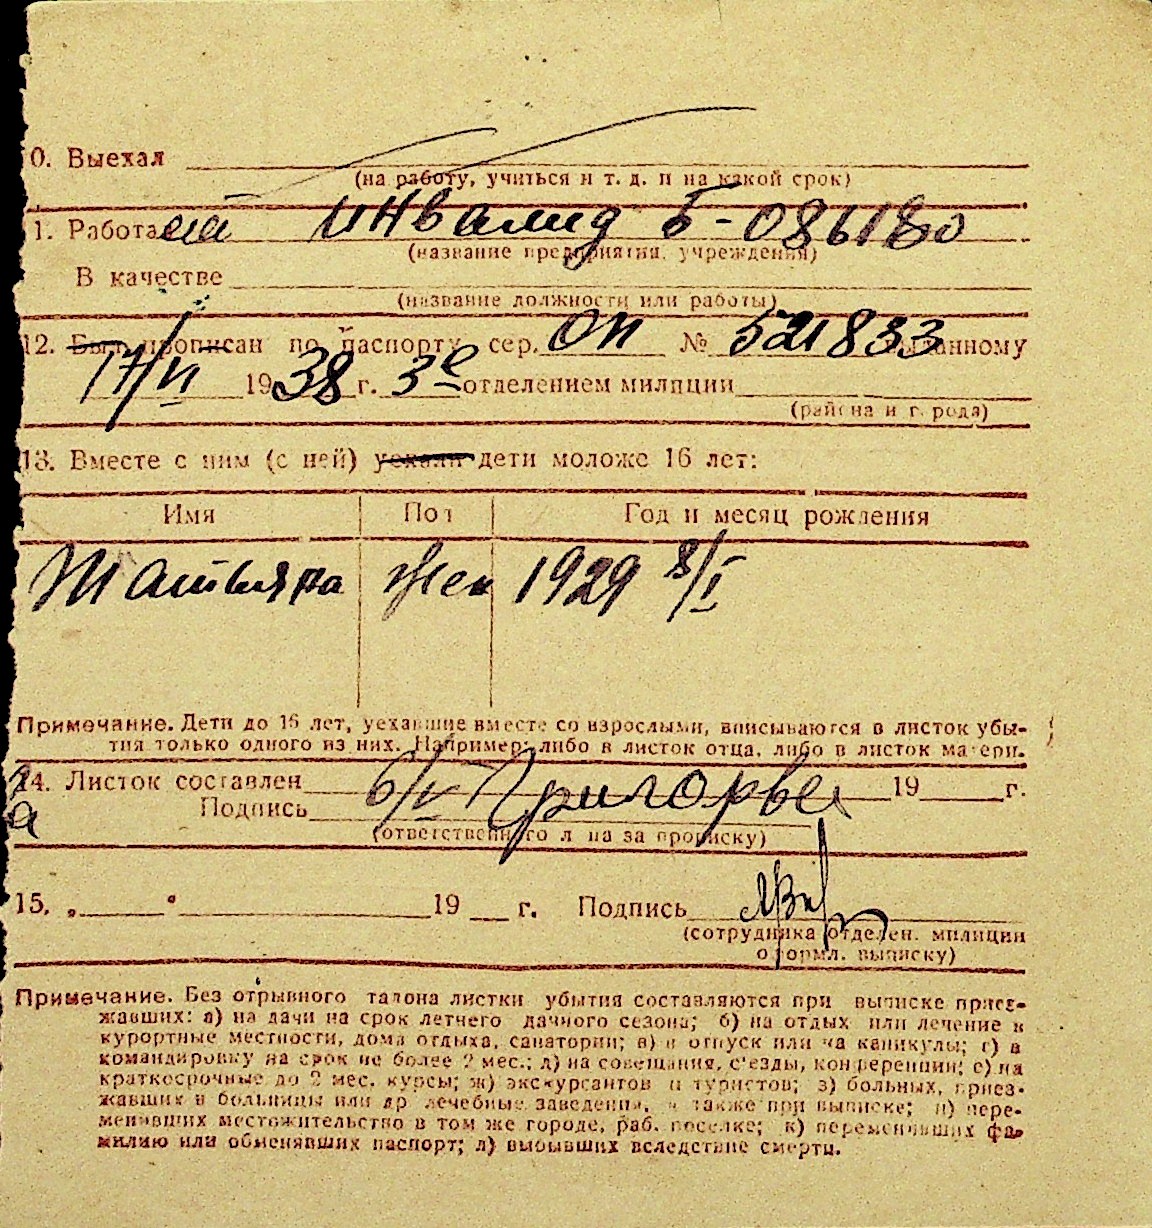 0. Выехал
(на работу, учиться и т. д. и на какой срок)
1. Работа ет инвалид Б-086180
(название предприятия, учреждения)
В качестве
(название должности или работы)
12. Был прописан по паспорту сер. ОП № 521833 выданному
17/VI 1938 г. 3е отделением милиции
(района и города)
13. Вместе с ним (с ней) уехали дети моложе 16 лет:
Имя Пол Год и месяц рождения
Татьяна Жен 1929 8/I
Примечание. Дети до 16 лет, уехавшие вместе со взрослыми, вписываются в листок убы-
тия только одного из них. Например, либо в листок отца, либо в листок матери.
14. Листок составлен 6/V Григорьев 19 г.
Подпись
(ответственного лица за прописку)
15. „ “ 19 г. Подпись
(сотрудника отделен. милиции
оформл. выписку)
Примечание. Без отрывного талона листки убытия составляются при выписке приез-
жавших: а) на дачи на срок летнего дачного сезона; б) на отдых или лечение в
курортные местности, дома отдыха, санатории; в) в отпуск или на каникулы; г) в
командировку на срок не более 2 мес.; д) на совещания, съезды, конференции; е) на
краткосрочные до 2 мес. курсы; ж) экскурсантов и туристов; з) больных, приез-
жавших в больницы или др лечебные заведения, а также при выписке; и) пере-
менивших местожительство в том же городе, раб. поселке; к) переменивших фа-
милию или обменявших паспорт; л) выбывших вследствие смерти.